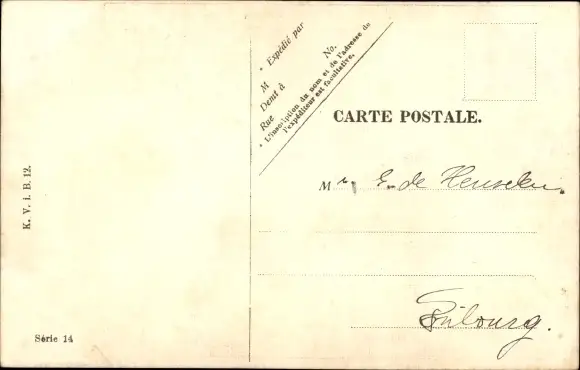 K. V. i. B. 12.
Série 14
* Expédié par
M
Demt à
Rue No.
* L'inscription du nom et de l'adresse de
l'expéditeur est facultative.
CARTE POSTALE.
Mr. E. de Henseler.
Fribourg.